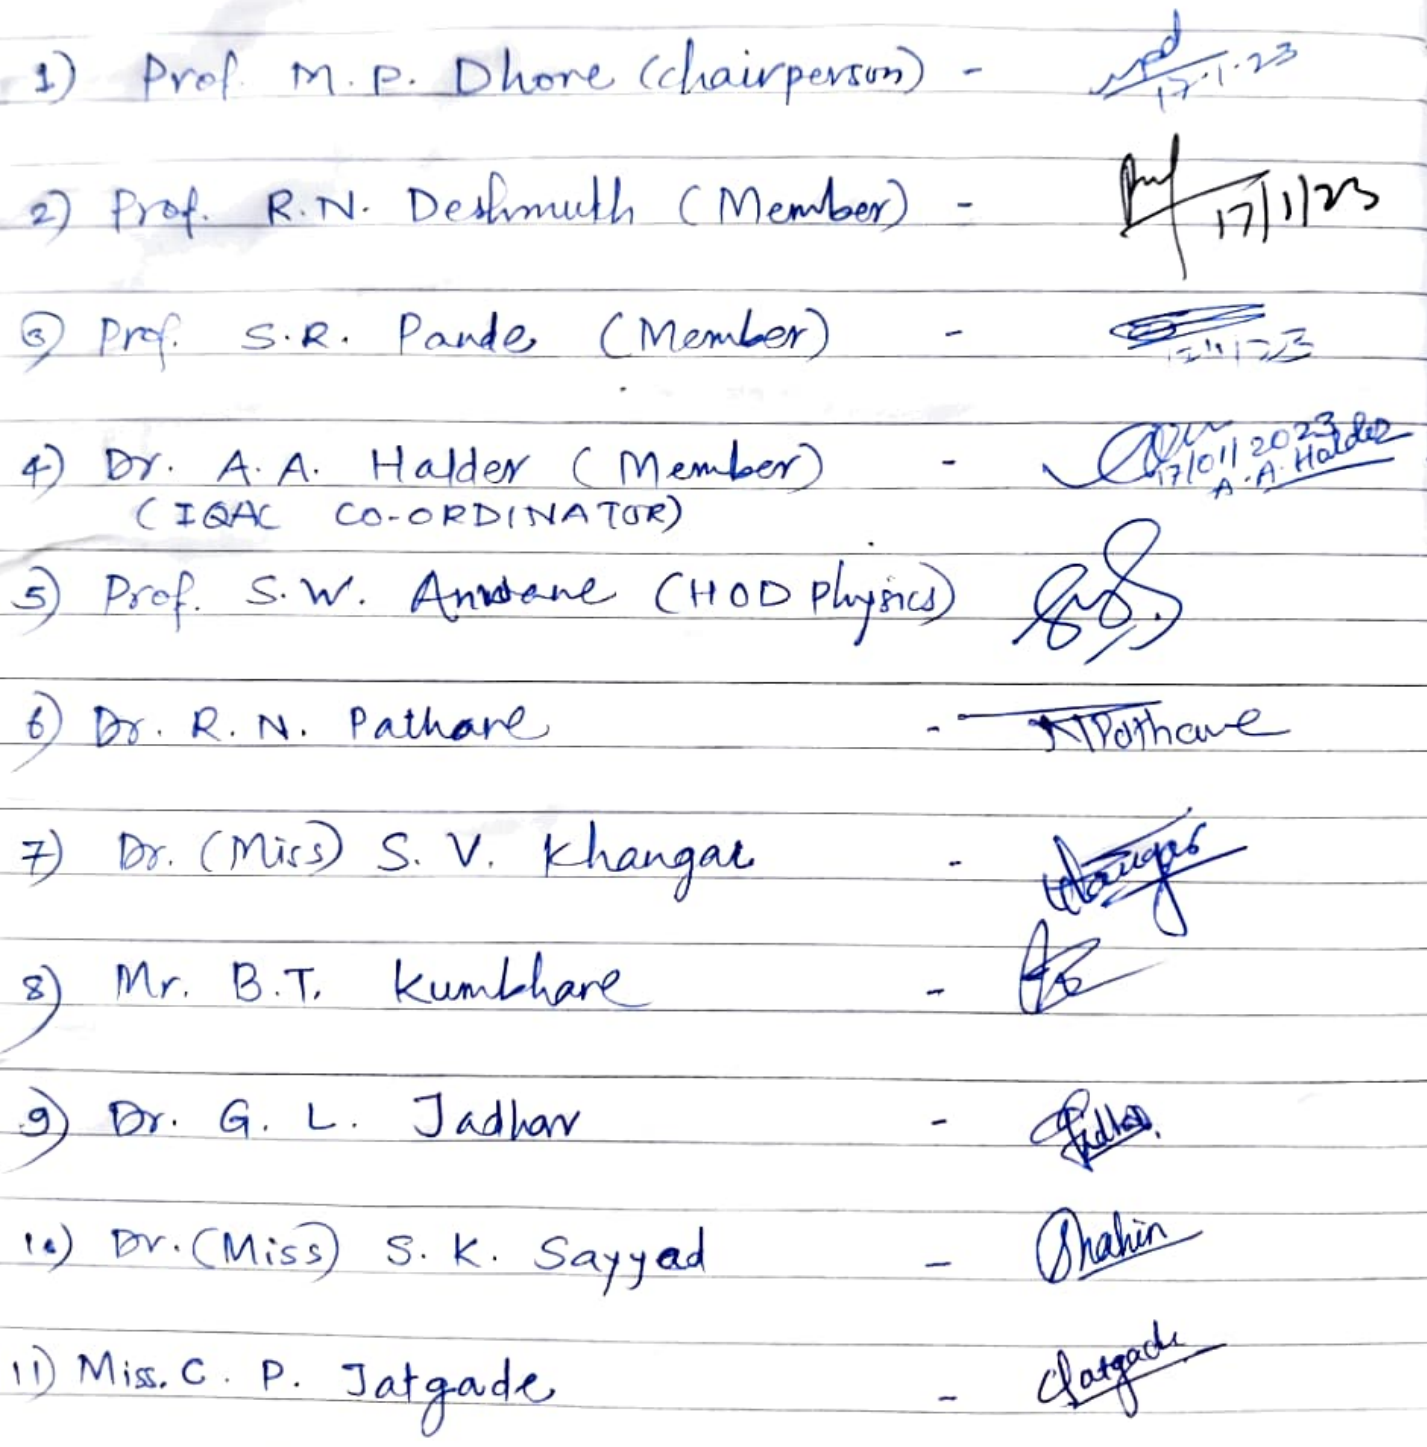 1) Prof. M. P. Dhore (chairperson) - 17.1.23
2) Prof. R.N. Deshmukh (Member) - 17/1/23
3) Prof. S.R. Pande (Member) -
4) Dr. A. A. Halder (Member) - 17/01/2023
(IQAC CO-ORDINATOR) A. A. Halder
5) Prof. S.W. Anwane (HOD Physics)
6) Dr. R. N. Pathare - Pathare
7) Dr. (Miss) S. V. Khangar - Khangar
8) Mr. B.T. Kumbhare -
9) Dr. G. L. Jadhav -
10) Dr. (Miss) S. K. Sayyad - Shahin
11) Miss. C. P. Jatgade - Jatgade